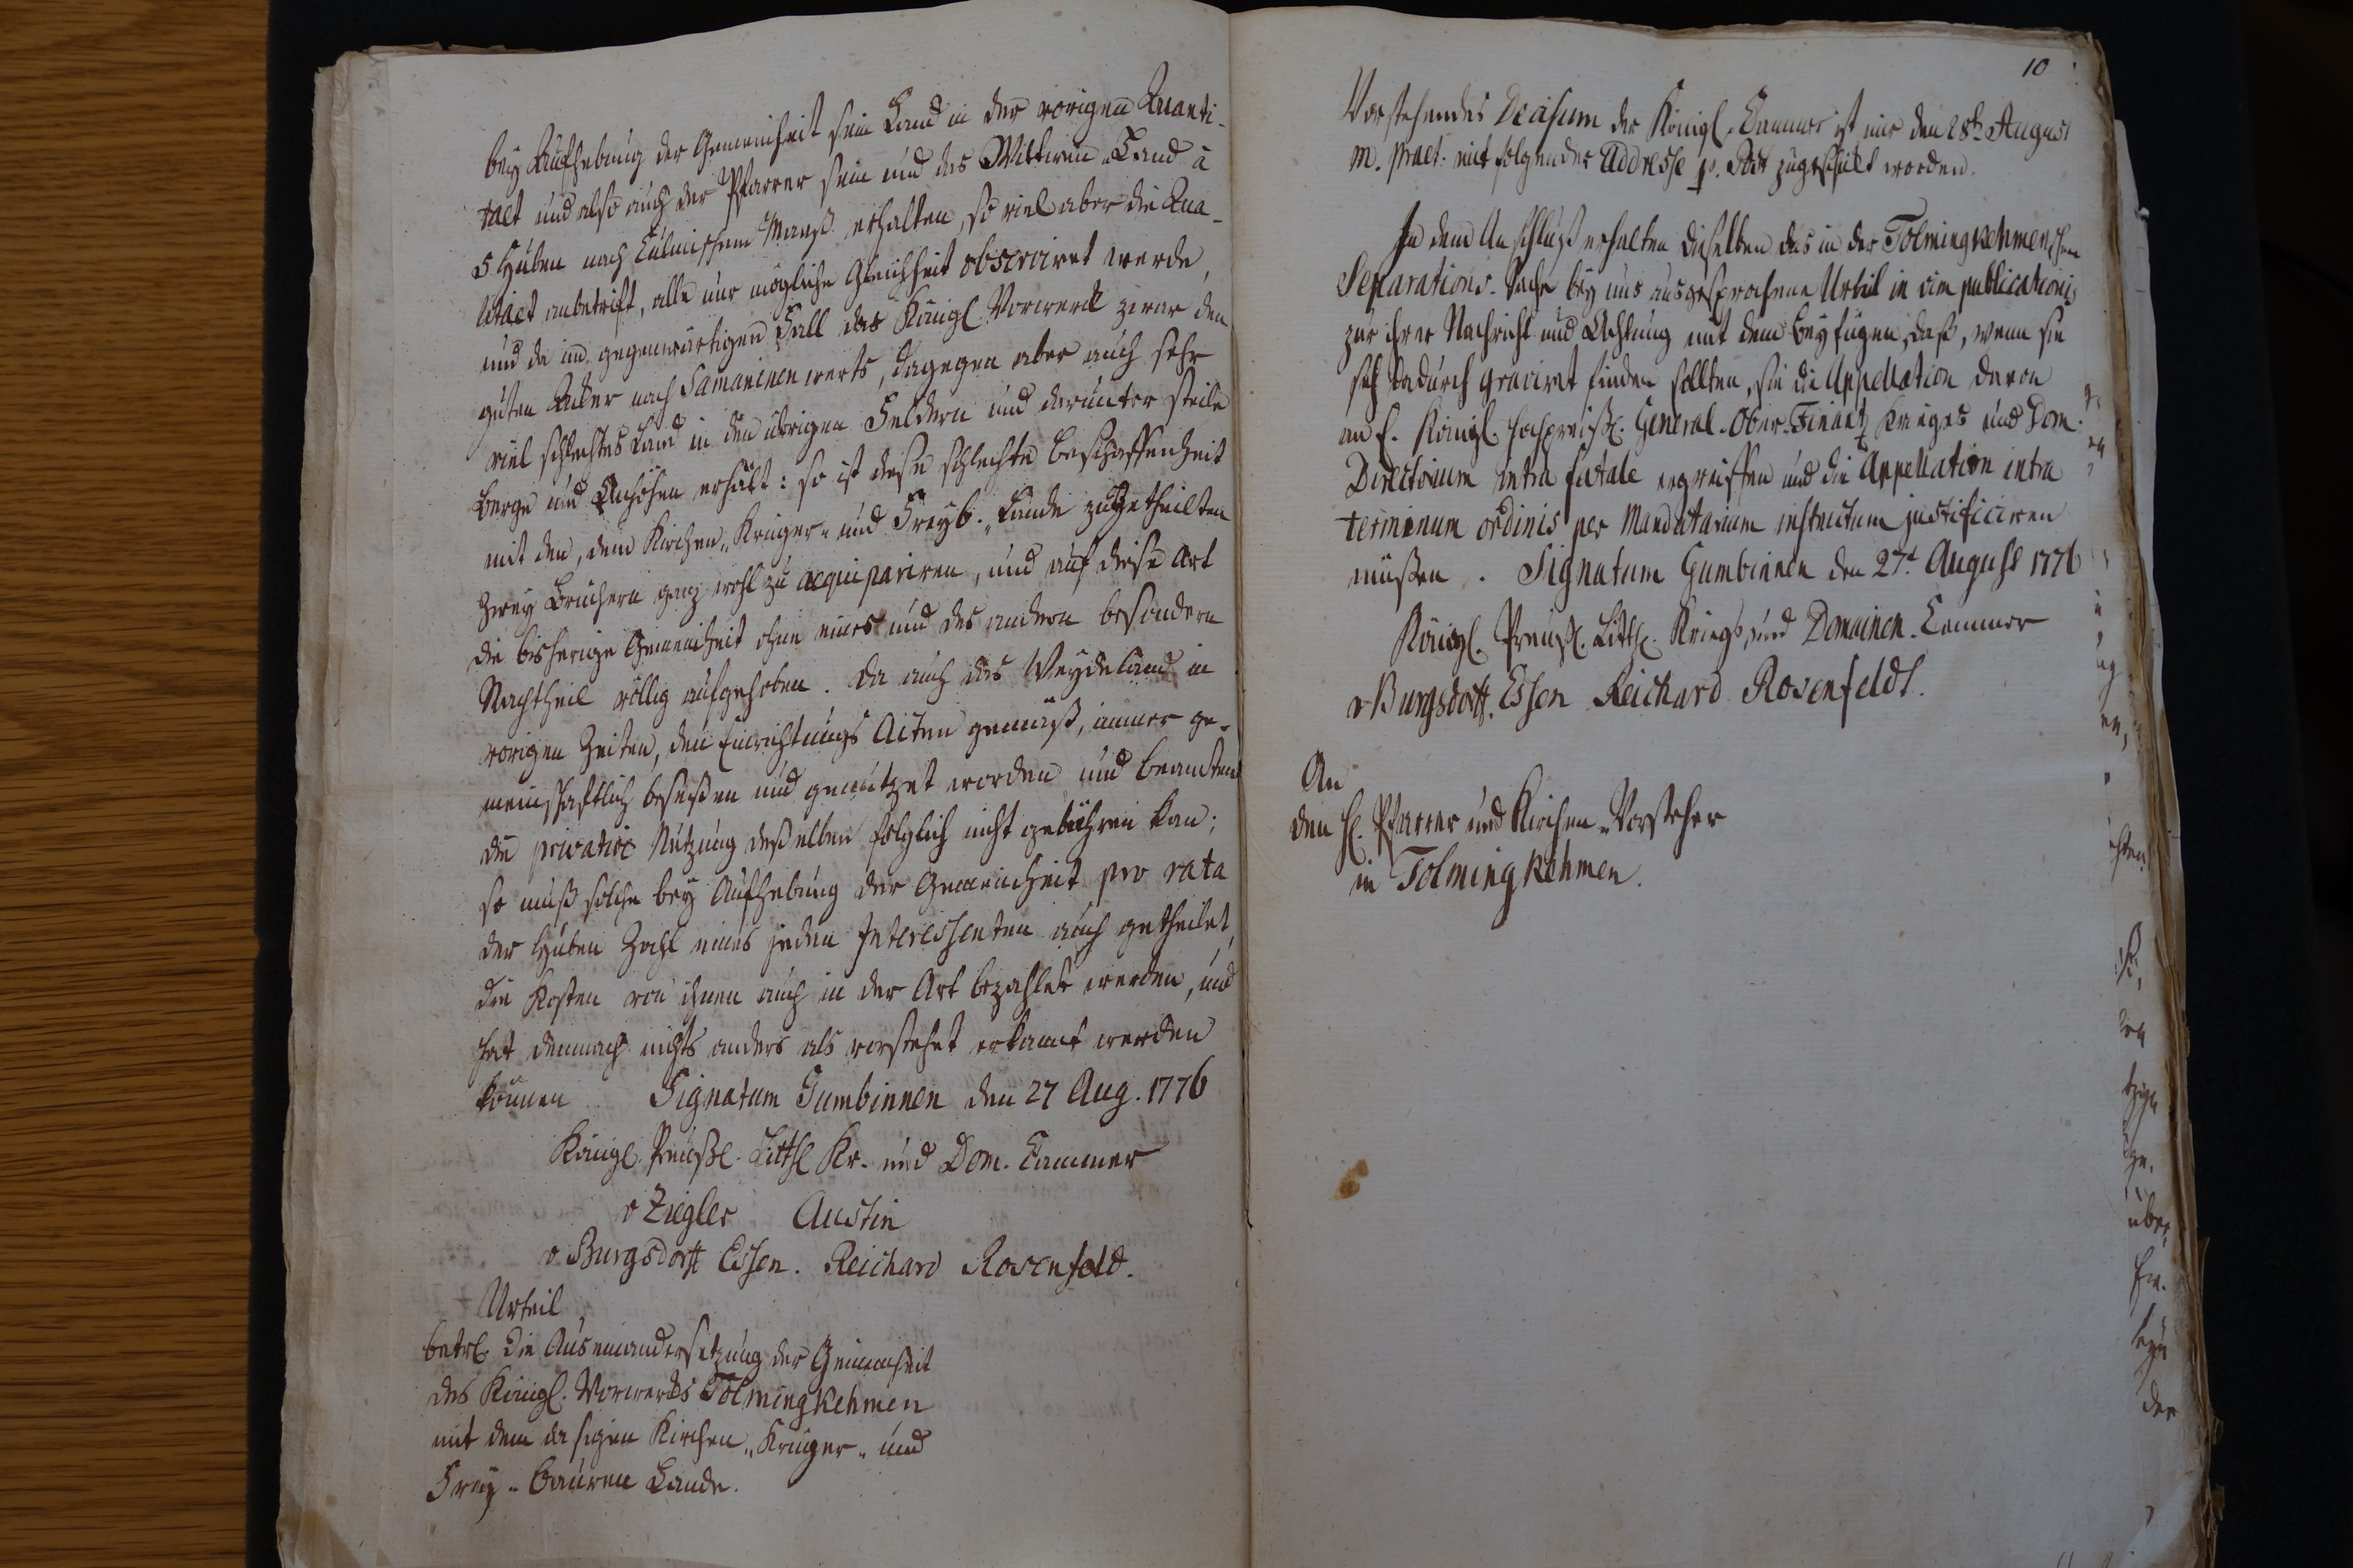 bey Aufhebung der Gemeinheit sein Land in der vorigen Quanti-
taet und also auch der Pfarrer sein und das Wittwen-Land à
5 Huben nach Culmischem Maaß erhalten, so viel aber die Qua-
litaet anbetrift, alle nur mögliche Gleichheit observiret werde,
und da im gegenwärtigen Fall das Königl. Vorwerk zwar den
guten Acker nach Samaninen werts, dagegen aber auch sehr
viel schlechtes Land in den übrigen Feldern und darunter steile
Berge und Anhöhen erhält: so ist diese schlechte Beschaffenheit
mit den, dem Kirchen- Krüger- und Freyb.-Lande zugetheilten
zwey Brüchern ganz wohl zu aequipariren, und auf diese Art
die bisherige Gemeinheit ohne eines und des andern besondern
Nachtheil völlig aufgehoben. Da auch das Weydeland in
vorigen Zeiten, den Einrichtungs Acten gemäß, immer ge-
meinschaftlich beseßen und genutzet worden und Beamten
die privative Nutzung deßelben folglich nicht gebühren kan;
so muß solche bey Aufhebung der Gemeinheit pro rata
der Huben Zahl eines jeden Interessenten auch getheilet,
die Kosten von ihnen auch in der Art bezahlet werden, und
hat demnach nichts anders als vorstehet erkannt werden
können Signatum Gumbinnen den 27 Aug. 1776
Königl. Preußl. Litthl Kr. und Dom. Cammer
v Ziegler Austin
v. Burgsdorff Essen. Reichard Rosenfeld.
Urteil,
betrl. die Auseinandersetzung der Gemeinheit
des Königl. Vorwerks Tolmingkehmen
mit dem dasigen Kirchen- Krüger- und
Frey-Bauren Lande.
10
Vorstehendes Decisum der Königl. Cammer ist mir den 28t. August
m. praet. mit folgender Addresse p. Post zugeschickt worden.
In dem Anschluß erhalten dieselben das in der Tolmingkehmenschen
Separations-Sache bey uns ausgesprochene Urteil in vim publicationis
zur ihrer Nachricht und Achtung mit dem Beyfügen, daß, wenn sie
sich dadurch graviret finden sollten, sie die Appellation davon
an E. Königl. Hochpreißl. General-Ober-Finantz Krieges und Dom.
Directorium intra fatale ergreiffen und die Appellation intra
terminum ordinis per Mandatarium instructum justificiren
müßen. Signatum Gumbinnen den 27t August 1776
Königl. Preußl. Litthl. Kriegs und Domainen-Cammer
v Burgsdorff. Essen Reichard Rosenfeldt.
An
den H. Pfarrer und Kirchen-Vorsteher
in Tolmingkehmen.